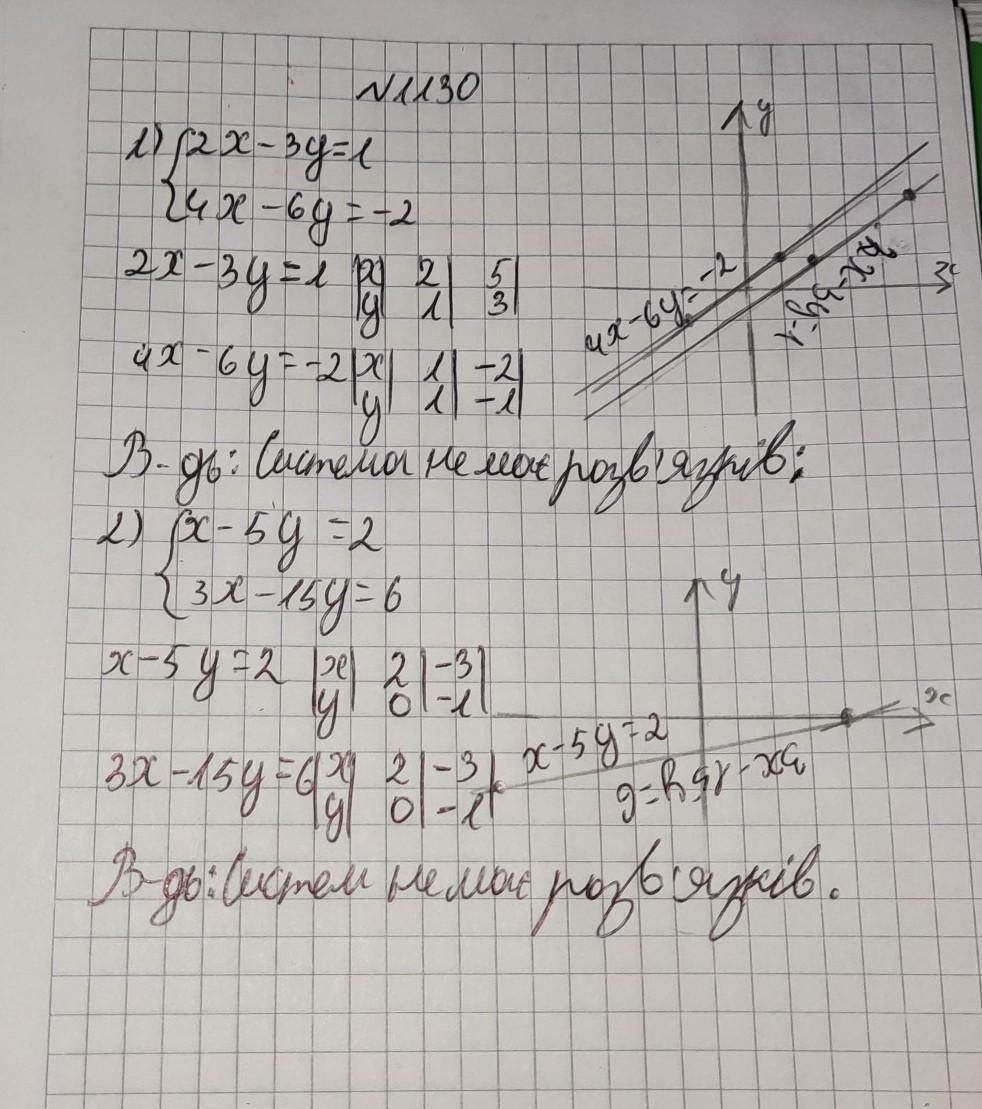 N1130
y
1) {2x-3y=1
4x-6y=-2
2x-3y=1 |x| 2| 5|
y| 1| 3|
4x-6y=-2
2x-3y=1
x
4x-6y=-2 |x| 1| -2|
y| 1| -1|
В-дь: Система не має розв'язків;
2) {x-5y=2
3x-15y=6
y
x-5y=2 |x| 2| -3|
y| 0| -1|
x
x-5y=2
3x-15y=6
3x-15y=6 |x| 2| -3|
y| 0| -1|
В-дь: Систем не має розв'язків.